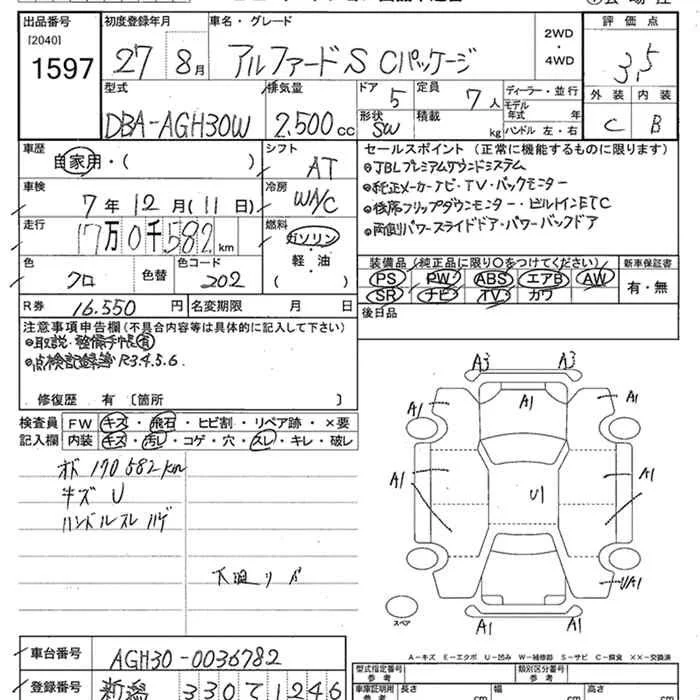 出品番号 初度登録年月 車名・グレード 評価点
[2040]
1597
27 8月 アルファードS Cパッケージ 2WD・4WD 3.5
型式 排気量 ドア 5 定員 7人 ディーラー・並行 外装 内装
DBA-AGH30W 2,500cc 形状 SW 積載 kg モデル年式 年 ハンドル 左・右 C B
車歴 自家用・( ) シフト AT
セールスポイント (正常に機能するものに限ります)
●JBLプレミアムサウンドシステム
車検 7年12月(11日) 冷房 W A/C
●純正メーカーナビ・TV・バックモニター
●後席フリップダウンモニター・ビルトインETC
走行 17万0千582km 燃料 ガソリン・軽・油 ( )
●両側パワースライドドア・パワーバックドア
色 クロ 色替 色コード 202
装備品 (純正品に限り○をつけてください) 新車保証書
PS PW ABS エアB AW 有・無
SR ナビ TV カワ
R券 16.550円 名変期限 月 日
後日品
注意事項申告欄(不具合内容等は具体的に記入して下さい)
●取説・整備手帳有
●点検記録簿 R3.4.5.6.
修復歴 有 〔箇所 〕
検査員記入欄 FW キズ・飛石・ヒビ割・リペア跡・×要
内装 キズ・汚レ・コゲ・穴・スレ・キレ・破レ
オド 170582km
キズ U
ハンドルスレ ハゲ
A3 A3
A1 A1 A1
A1 U1 A1
U/A1
A1 A1
スペア
A-キズ E-エクボ U-凹み W-補修跡 S-サビ C-腐食 ××-交換済
車台番号 AGH30-0036782
型式指定番号 参考 類別区分番号 参考
登録番号 新潟 330 1246
車庫証明用 参考 長さ cm 幅 cm 高さ cm